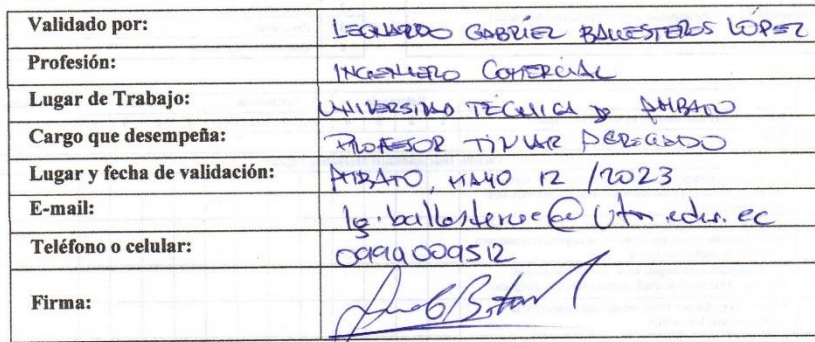 Validado por: LEONARDO GABRIEL BALLESTEROS LÓPEZ
Profesión: INGENIERO COMERCIAL
Lugar de Trabajo: UNIVERSIDAD TÉCNICA DE AMBATO
Cargo que desempeña: PROFESOR TITULAR AGREGADO
Lugar y fecha de validación: AMBATO, MAYO 12 /2023
E-mail:
Teléfono o celular: 0999009512
Firma: